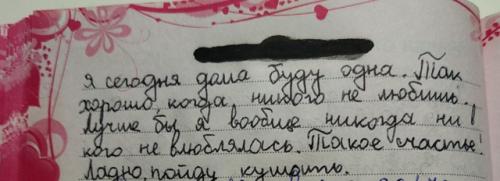 я сегодня дома буду одна. Так
хорошо, когда никого не любишь.
Лучше бы я вообще никогда ни
кого не влюблялась. Такое счастье!
Ладно, пойду